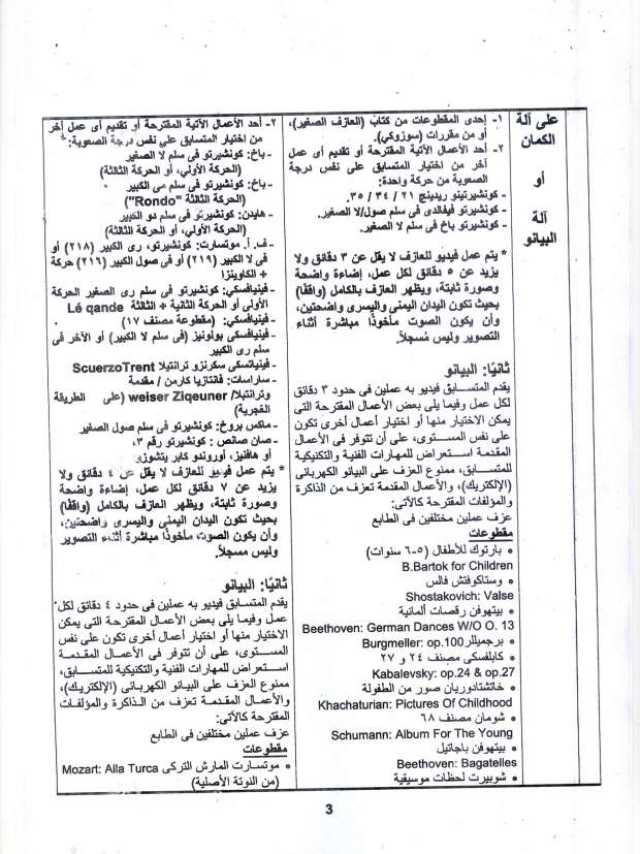 على آلة
الكمان
أو
آلة
البيانو
١- إحدى المقطوعات من كتاب (العازف الصغير)،
أو من مقررات (سوزوكي).
٢- أحد الأعمال الآتية المقترحة أو تقديم أى عمل
آخر من اختيار المتسابق على نفس درجة
الصعوبة من حركة واحدة:
- كونشيرتينو ريدينج ٢١ / ٣٤ / ٣٥.
- كونشيرتو فيفالدى فى سلم صول/لا الصغير.
- كونشيرتو باخ فى لا الصغير.
* يتم عمل فيديو للعازف لا يقل عن ٣ دقائق ولا
يزيد عن ٥ دقائق لكل عمل، إضاءة واضحة
وصورة ثابتة، ويظهر العازف بالكامل (واقفًا)
بحيث تكون اليدان اليمنى واليسرى واضحتين،
وأن يكون الصوت مأخوذًا مباشرة أثناء
التصوير وليس مُسجلاً.
ثانيًا: البيانو
يقدم المتسابق فيديو به عملين فى حدود ٣ دقائق
لكل عمل وفيما يلى بعض الأعمال المقترحة التى
يمكن الاختيار منها أو اختيار أعمال أخرى تكون
على نفس المستوى، على أن تتوفر فى الأعمال
المقدمة استعراض للمهارات الفنية والتكنيكية
للمتسابق، ممنوع العزف على البيانو الكهربائى
(الإلكتريك)، والأعمال المقدمة تعزف من الذاكرة
والمؤلفات المقترحة كالآتى:
عزف عملين مختلفين فى الطابع
مقطوعات
• بارتوك للأطفال (٥-٦ سنوات)
B.Bartok for Children
• وستاكوفتش فالس
Shostakovich: Valse
• بيتهوفن رقصات ألمانية
Beethoven: German Dances W/O O. 13
• برجميللر Burgmeller: op.100
• كابلفسكى مصنف ٢٤ و ٢٧
Kabalevsky: op.24 & op.27
• خاتشتادوريان صور من الطفولة
Khachaturian: Pictures Of Childhood
• شومان مصنف ٦٨
Schumann: Album For The Young
• بيتهوفن باجاتيل
Beethoven: Bagatelles
• شوبيرت لحظات موسيقية
٢- أحد الأعمال الآتية المقترحة أو تقديم أى عمل آخر
من اختيار المتسابق على نفس درجة الصعوبة:
- باخ: كونشيرتو فى سلم لا الصغير
(الحركة الأولي، أو الحركة الثالثة)
- باخ: كونشيرتو فى سلم مى الكبير
(الحركة الثالثة "Rondo")
- هايدن: كونشيرتو فى سلم دو الكبير
(الحركة الأولي، أو الحركة الثالثة)
- ف. أ. موتسارت: كونشيرتو، رى الكبير (٢١٨) أو
فى لا الكبير (٢١٩) أو فى صول الكبير (٢١٦) حركة
+ الكاوينزا
- فينيافسكي: كونشيرتو فى سلم رى الصغير الحركة
الأولى أو الحركة الثانية + الثالثة Lé qande
- فينيافسكي: (مقطوعة مصنف ١٧)
- فينيافسكى بولونيز (فى سلم لا الكبير) أو الآخر فى
سلم رى الكبير
- فينياتسكى سكرنزو ترانتيلا ScuerzoTrent
- ساراسات: فانتازيا كارمن / مقدمة
وترانتيلا/ weiser Ziqeuner (على الطريقة
الغجرية)
- ماكس بروخ: كونشيرتو فى سلم صول الصغير
- صان صانص : كونشيرتو رقم ٣،
أو هافنيز، أوروندو كابر يتشوزو
* يتم عمل فيديو للعازف لا يقل عن ٤ دقائق ولا
يزيد عن ٧ دقائق لكل عمل، إضاءة واضحة
وصورة ثابتة، ويظهر العازف بالكامل (واقفًا)
بحيث تكون اليدان اليمنى واليسرى واضحتين،
وأن يكون الصوت مأخوذًا مباشرة أثناء التصوير
وليس مسجلاً.
ثانيًا: البيانو
يقدم المتسابق فيديو به عملين فى حدود ٤ دقائق لكل
عمل وفيما يلى بعض الأعمال المقترحة التى يمكن
الاختيار منها أو اختيار أعمال أخرى تكون على نفس
المستوى، على أن تتوفر فى الأعمال المقدمة
استعراض للمهارات الفنية والتكنيكية للمتسابق،
ممنوع العزف على البيانو الكهربائى (الإلكتريك)،
والأعمال المقدمة تعزف من الذاكرة والمؤلفات
المقترحة كالآتى:
عزف عملين مختلفين فى الطابع
مقطوعات
• موتسارت المارش التركى Mozart: Alla Turca
(من النوتة الأصلية)
3